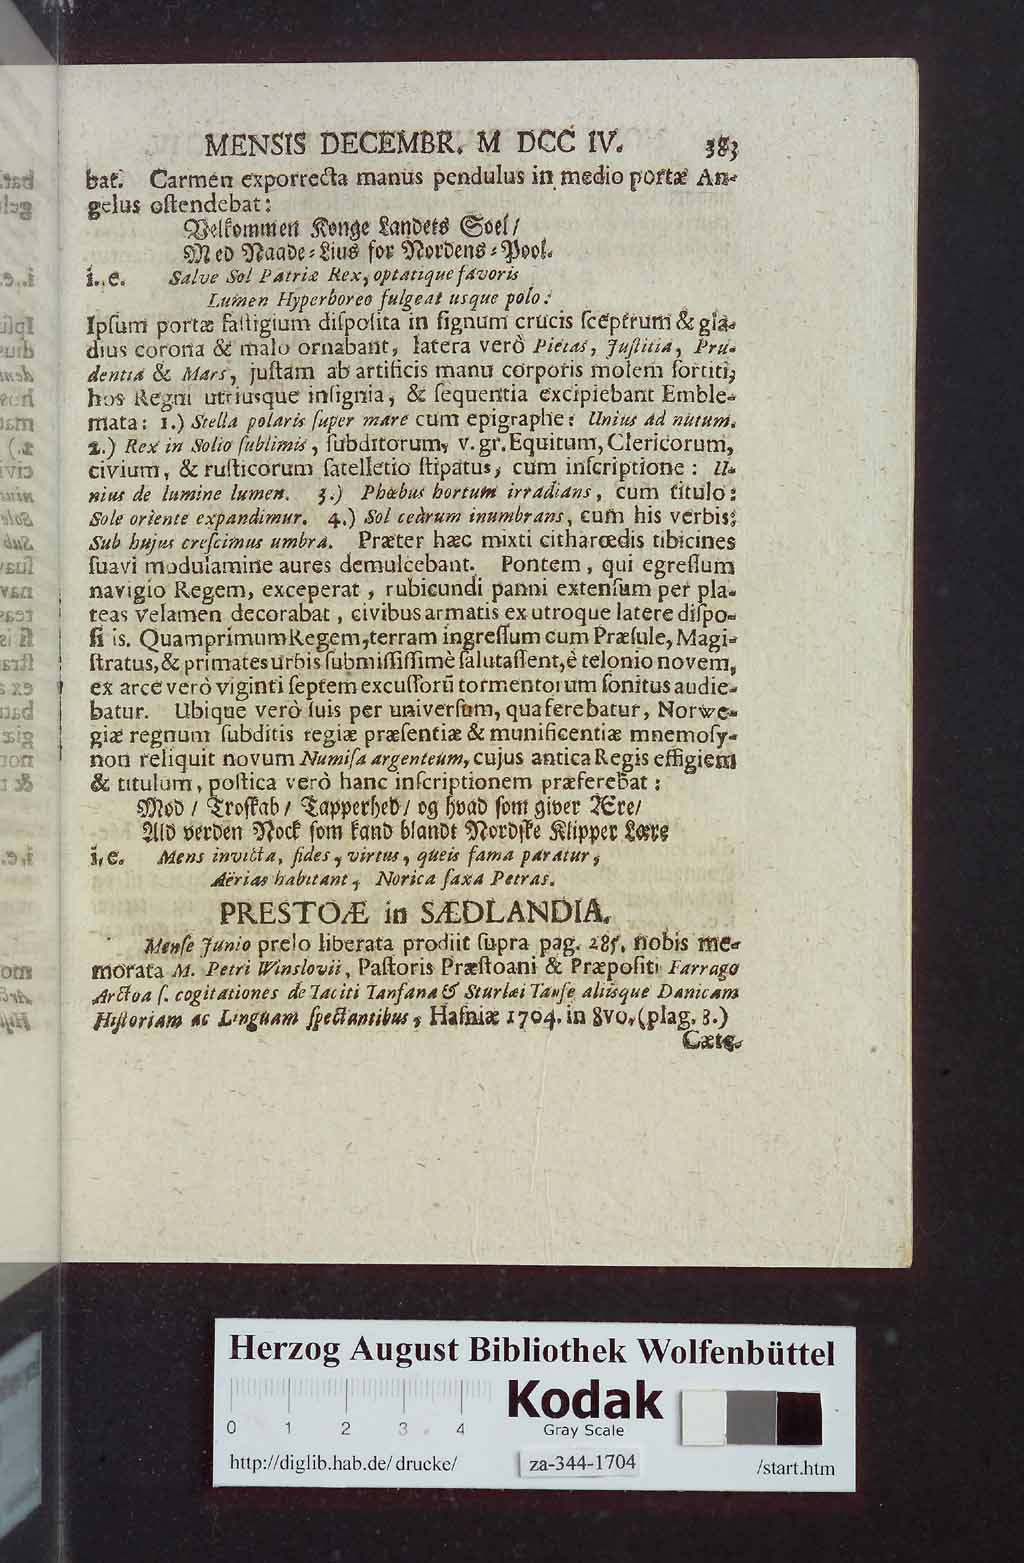 MENSIS DECEMBR. M DCC IV. 383
bat. Carmen exporrecta manus pendulus in medio portæ An-
gelus oſtendebat:
Velkommen Konge Landets Soel/
Med Naade-Lius for Nordens-Pool.
i. e. Salve Sol Patriæ Rex, optatique favoris
Lumen Hyperboreo fulgeat usque polo:
Ipſum portæ faſtigium diſpoſita in ſignum crucis ſceptrum & gla-
dius corona & malo ornabant, latera verò Pietas, Juſtitia, Pru-
dentia & Mars, juſtam ab artificis manu corporis molem ſortiti,
hos Regni utriusque inſignia, & ſequentia excipiebant Emble-
mata: 1.) Stella polaris ſuper mare cum epigraphe: Unius ad nutum.
2.) Rex in Solio ſublimis, ſubditorum, v. gr. Equitum, Clericorum,
civium, & ruſticorum ſatelletio ſtipatus, cum inſcriptione: U-
nius de lumine lumen. 3.) Phœbus hortum irradians, cum titulo:
Sole oriente expandimur. 4.) Sol cedrum inumbrans, cum his verbis:
Sub hujus creſcimus umbra. Præter hæc mixti citharœdis tibicines
ſuavi modulamine aures demulcebant. Pontem, qui egreſſum
navigio Regem, exceperat, rubicundi panni extenſum per pla-
teas velamen decorabat, civibus armatis ex utroque latere diſpo-
ſi is. Quamprimum Regem, terram ingreſſum cum Præſule, Magi-
ſtratus, & primates urbis ſubmiſſiſſimè ſalutaſſent, è telonio novem,
ex arce verò viginti ſeptem excuſſorũ tormentorum ſonitus audie-
batur. Ubique verò ſuis per univerſum, qua ferebatur, Norwe-
giæ regnum ſubditis regiæ præſentiæ & munificentiæ mnemoſy-
non reliquit novum Numiſa argenteum, cujus antica Regis effigiem
& titulum, poſtica verò hanc inſcriptionem præferebat:
Mod / Troſkab / Tapperhed / og hvad ſom giver Ære/
Ald verden Nock ſom kand blandt Nordſke Klipper Lære
i. e. Mens invicta, fides, virtus, queis fama paratur,
Aërias habitant, Norica ſaxa Petras.
PRESTOÆ in SÆDLANDIA.
Menſe Junio prelo liberata prodiit ſupra pag. 285. nobis me-
morata M. Petri Winslovii, Paſtoris Præſtoani & Præpoſiti Farrago
Arctoa ſ. cogitationes de Taciti Tanfana & Sturlæi Taufe aliisque Danicam
Hiſtoriam ac Linguam ſpectantibus, Hafniæ 1704. in 8vo. (plag. 8.)
Herzog August Bibliothek Wolfenbüttel
0 1 2 3 4
Kodak
Gray Scale
http://diglib.hab.de/drucke/ za-344-1704 /start.htm